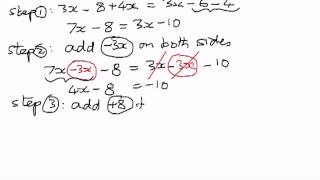 step ①: 3x - 8 + 4x = 3x - 6 - 4
7x - 8 = 3x - 10
step ②: add -3x on both sides
7x -3x - 8 = 3x - 3x - 10
4x - 8 = -10
step ③: add +8 t